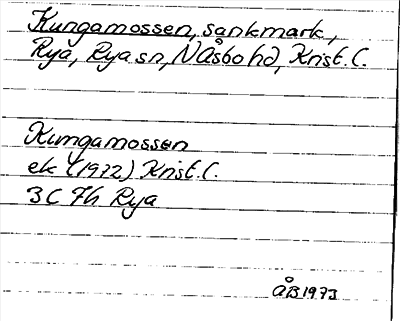 Kungamossen, sankmark,
Rya, Rya sn, N Åsbo hd, Krist. l.
Kungamossen
ek (1972) Krist. l.
3C 7h Rya
ÅB 1973